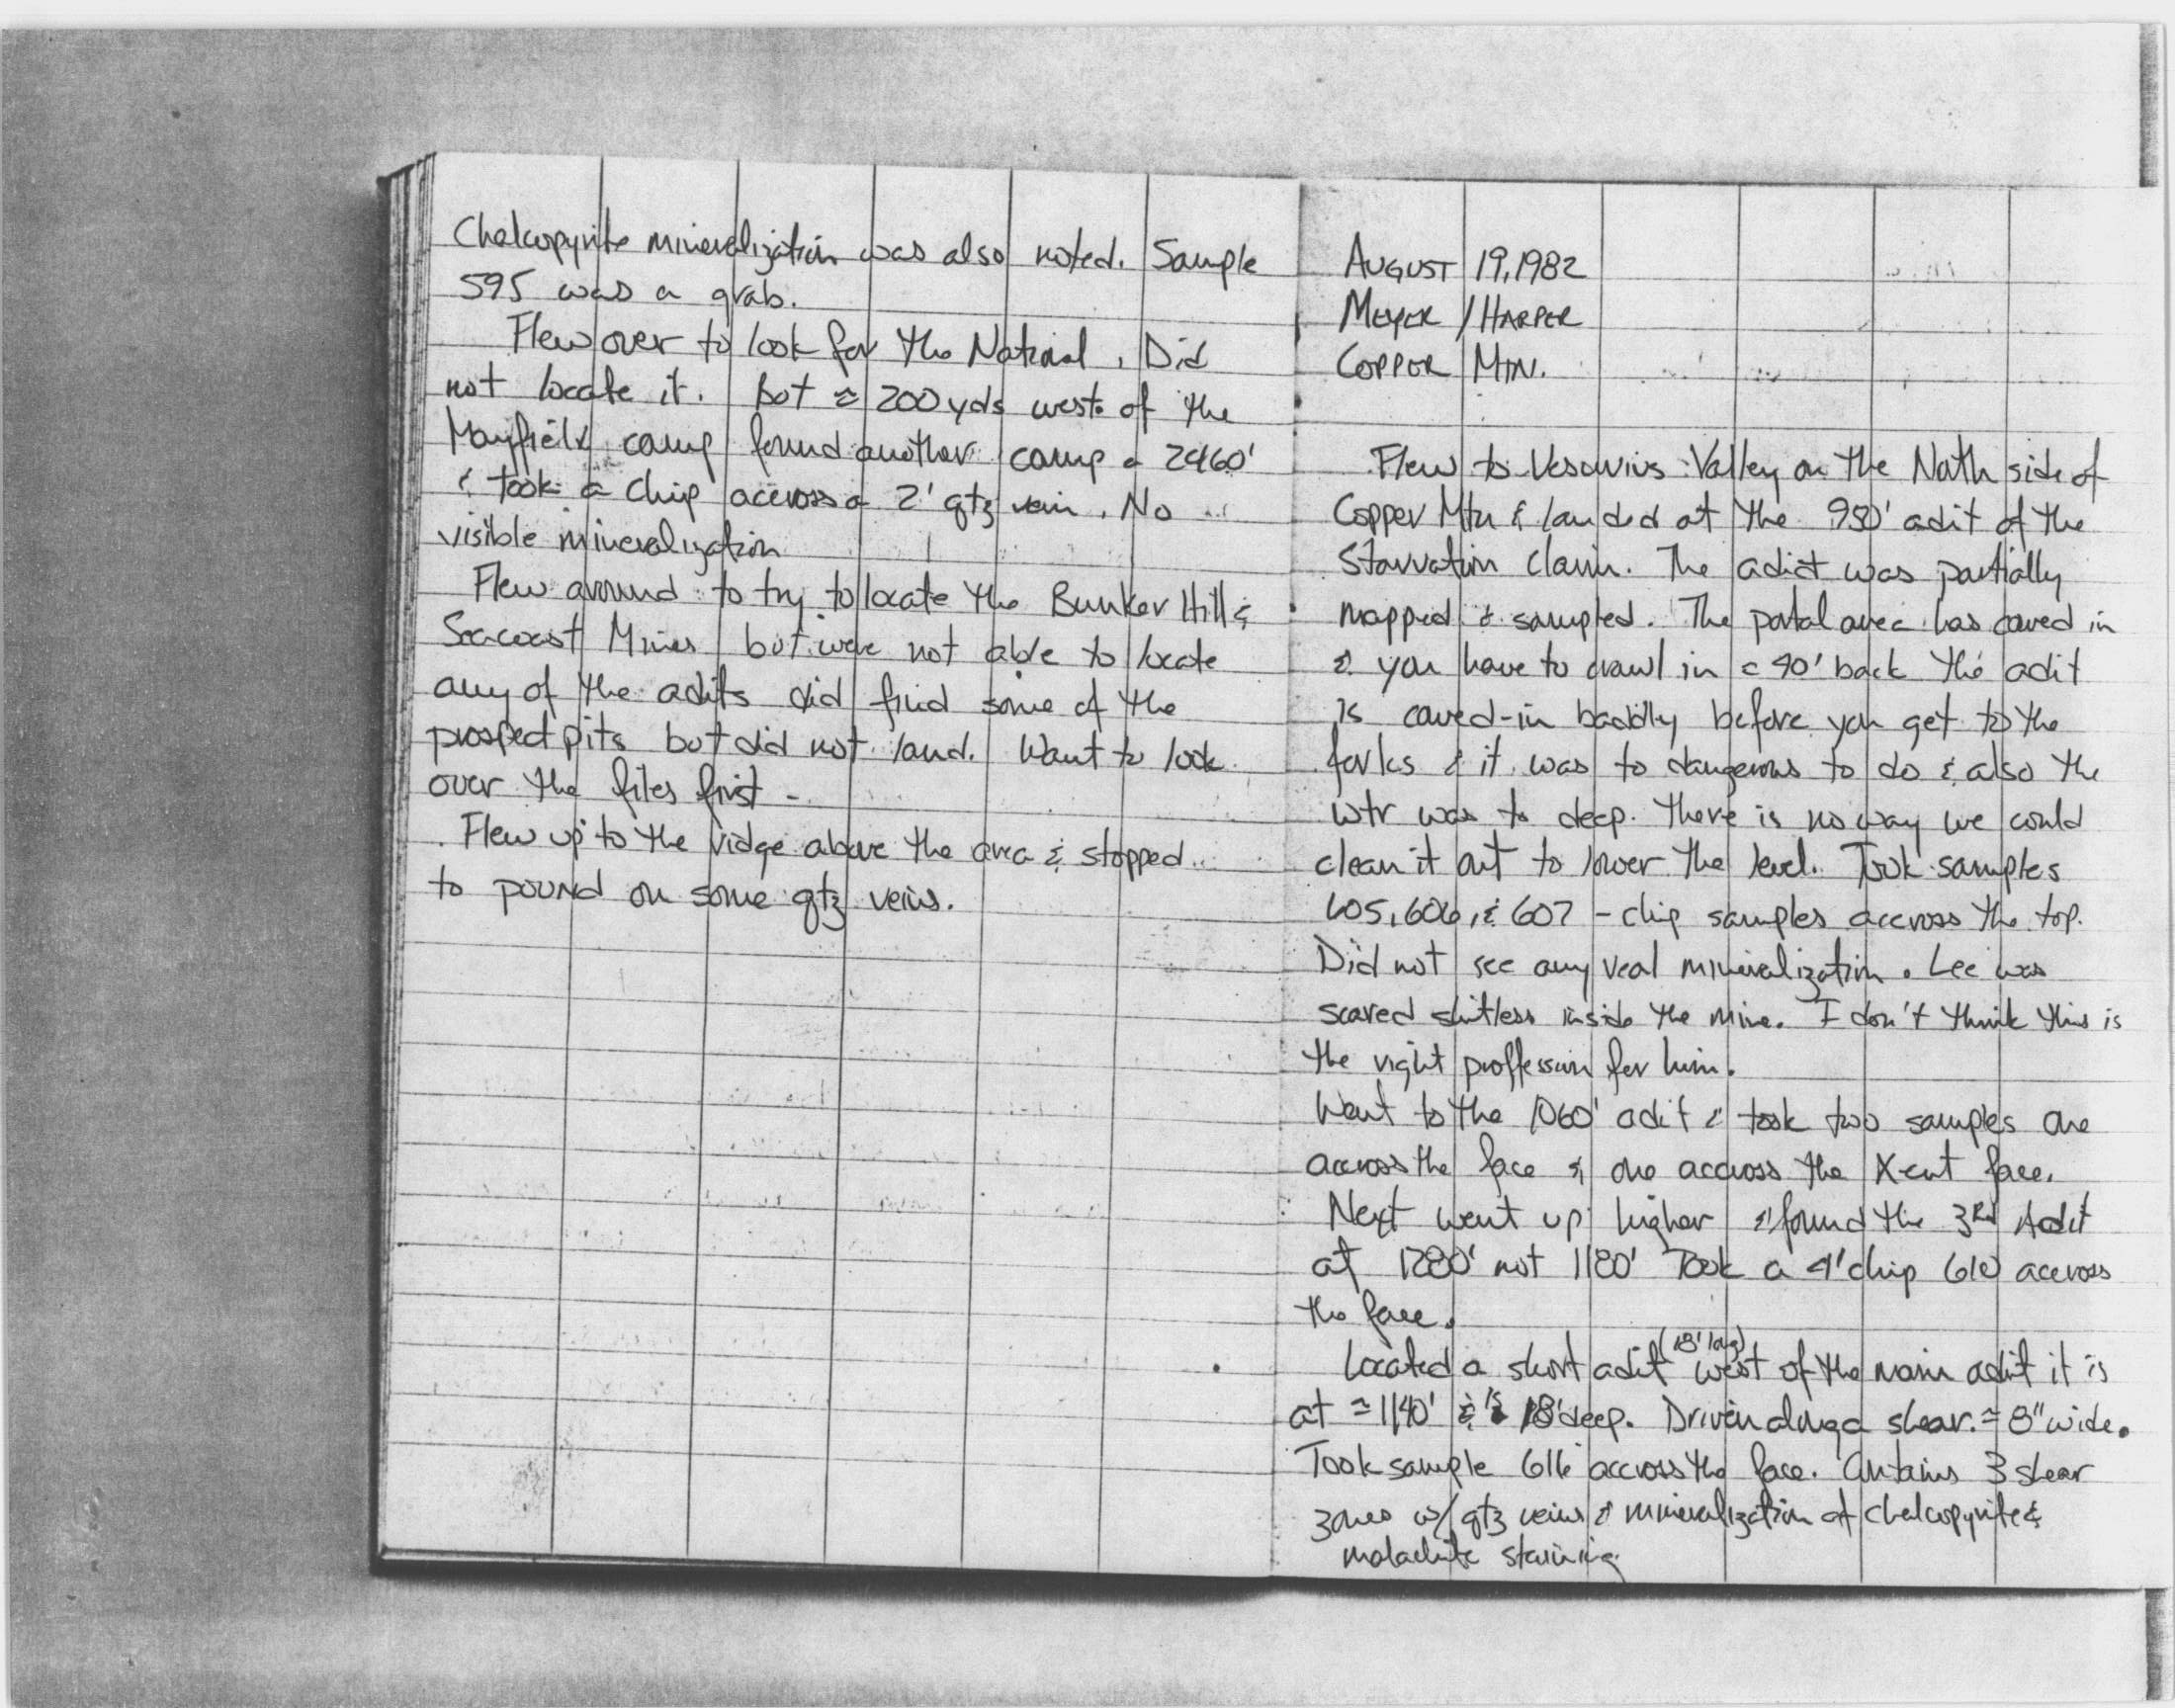 Chalcopyrite mineralization was also noted. Sample
595 was a grab.
Flew over to look for the National. Did
not locate it. But ≈ 200 yds west of the
Mayfield camp found another camp @ 2460'
& took a chip accross a 2' qtz vein. No
visible mineralization
Flew around to try to locate the Bunker Hill &
Seacoast Mines but were not able to locate
any of the adits did find some of the
prospect pits but did not land. Want to look
over the files first -
Flew up to the ridge above the area & stopped
to pound on some qtz veins.
AUGUST 19, 1982
MEYER / HARPER
COPPER MTN.
Flew to Vesuvius Valley on the North side of
Copper Mtn & landed at the 950' adit of the
Starvation Claim. The adict was partially
mapped & sampled. The portal area has caved in
& you have to crawl in ≈ 40' back the adit
is caved-in baddly before you get to the
forks & it was to dangerous to do & also the
wtr was to deep. There is no way we could
clean it out to lower the level. Took samples
605, 606, & 607 - chip samples accross the top.
Did not see any real mineralization. Lee was
scared shitless inside the mine. I don't think this is
the right proffession for him.
Went to the 1060' adit & took two samples one
accross the face & one accross the X-cut face.
Next went up higher & found the 3RD Adit
at 1280' not 1180' Took a 4' chip 610 accross
the face.
Located a short adit (18' long) west of the main adit it is
at ≈ 1140' & is 18' deep. Driven along a shear. ≈ 8" wide.
Took sample 616 accross the face. Contains 3 shear
zones w/ qtz veins & mineralization of chalcopyrite &
malachite staining